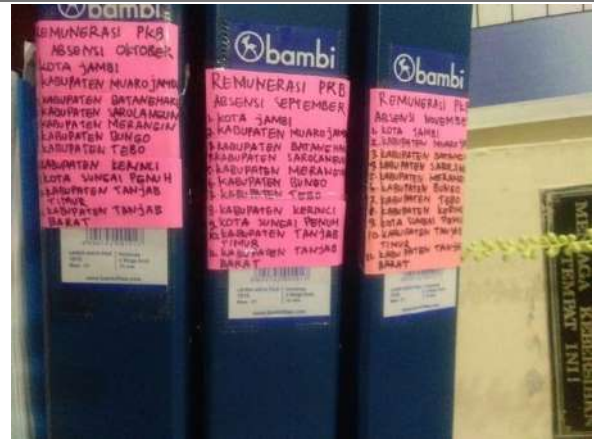 bambi
REMUNERASI PKB
ABSENSI OKTOBER
KOTA JAMBI
KABUPATEN MUARO JAMBI
KABUPATEN BATANGHARI
KABUPATEN SAROLANGUN
KABUPATEN MERANGIN
KABUPATEN BUNGO
KABUPATEN TEBO
KABUPATEN KERINCI
KOTA SUNGAI PENUH
KABUPATEN TANJAB
TIMUR
KABUPATEN TANJAB
BARAT
bambi
REMUNERASI PKB
ABSENSI SEPTEMBER
1. KOTA JAMBI
2. KABUPATEN MUARO JAMBI
3. KABUPATEN BATANGHARI
4. KABUPATEN SAROLANGUN
5. KABUPATEN MERANGIN
6. KABUPATEN BUNGO
7. KABUPATEN TEBO
8. KABUPATEN KERINCI
9. KOTA SUNGAI PENUH
10. KABUPATEN TANJAB
TIMUR
11. KABUPATEN TANJAB
BARAT
bambi
REMUNERASI
ABSENSI NOVEMBER
1. KOTA JAMBI
2. KABUPATEN MUARO
3. KABUPATEN
4. KABUPATEN
5. KABUPATEN MERANGIN
6. KABUPATEN BUNGO
7. KABUPATEN TEBO
8. KABUPATEN KERINCI
9. KOTA SUNGAI PENUH
10. KABUPATEN TANJAB
TIMUR
11. KABUPATEN TANJAB
BARAT
KEBERSIHAN
TEMPAT INI!